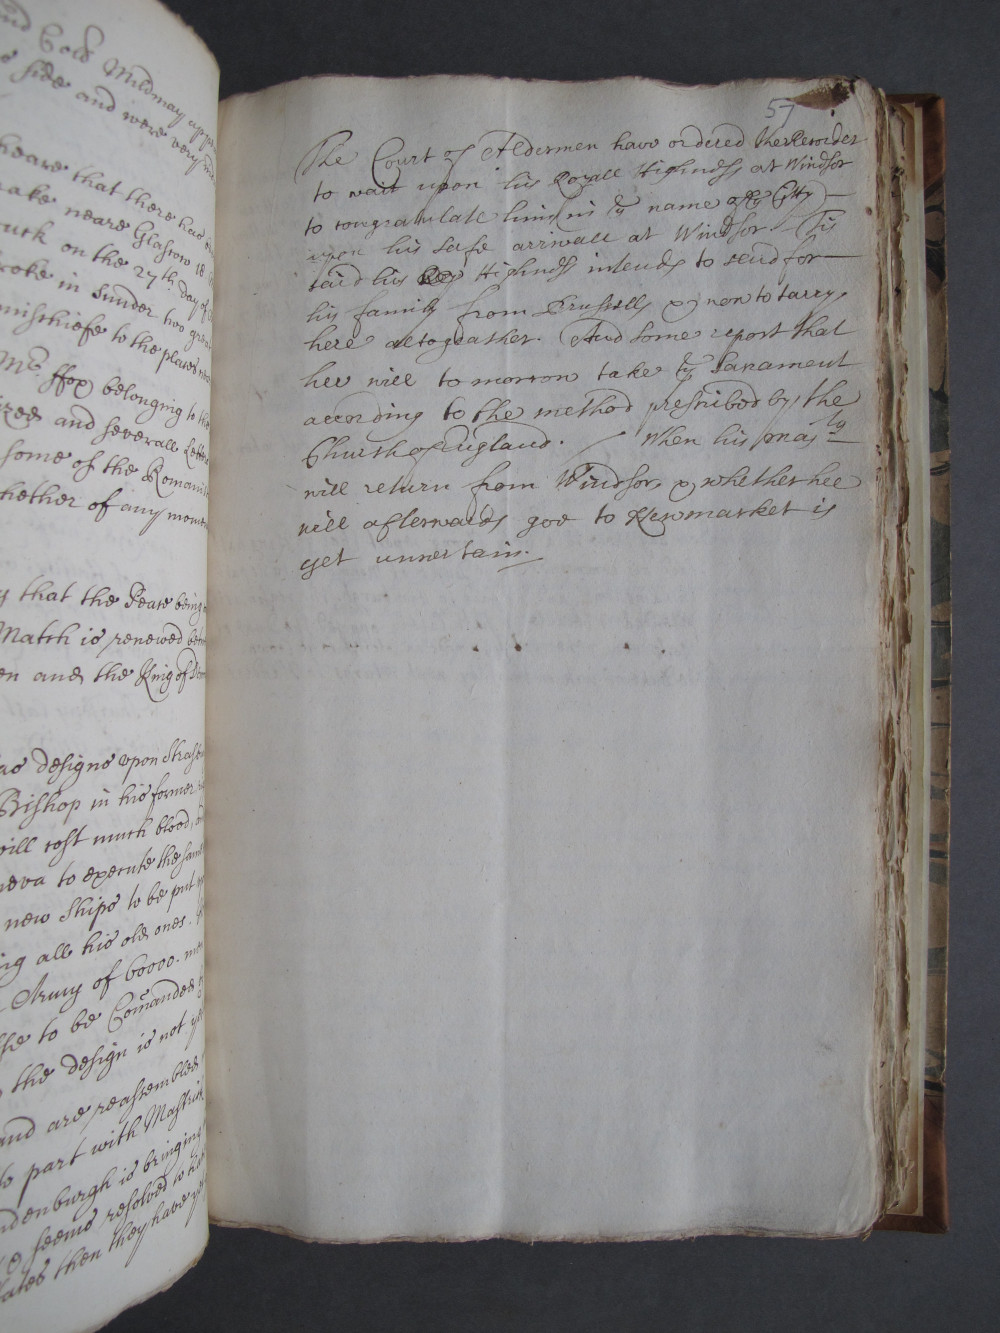 and Cold Mildmay appe
side and were very
heare that there had
neare Glascow 18
on the 27th day of
broke in sunder two great
mischiefe to the places
Mr. ffox belonging to the
and severall Letters
some of the Romanis
whether of any momen
that the Peace being
Match is renewed be
and the King of Den
designs upon Stras
Bishop in his former
will cost much blood,
to execute the same
new Ships to be put
all his old ones.
Army of 60000. men
to be Comanded
the design is not ye
and are reassembled
to part with Mastrich
is bringing
seems resolved to
then they have
57
The Court of Aldermen have ordered the Recorder
to wait upon his Royall Highness at Windsor
to congratulate him in ye name of ye Citty
upon his safe arrivall at Windsor Tis
said his Highness intends to send for
his family from Brussells & now to tarry
here altogeather. And some report that
hee will to morrow take ye Sacrament
according to the method prescribed by the
Church of England. When his majty
will return from Windsor, & whether hee
will afterwards goe to Newmarket is
yet uncertain.